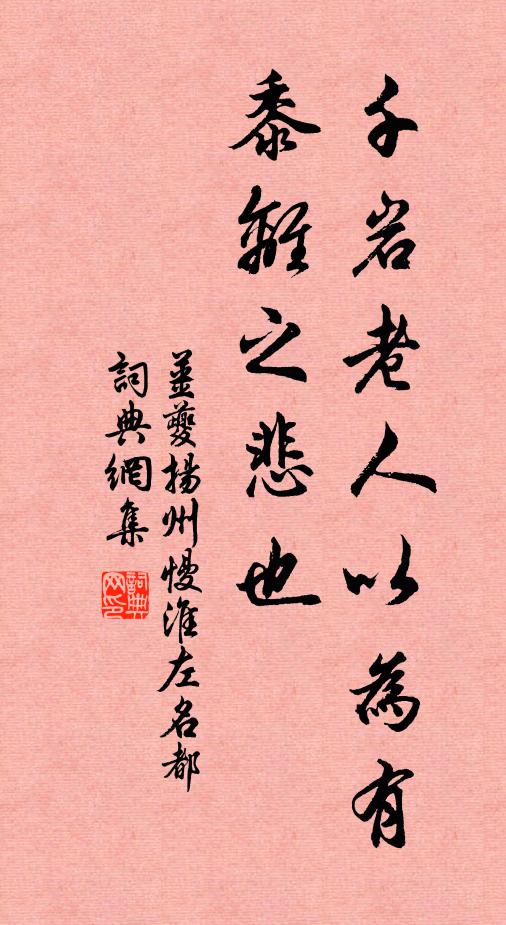 千岩老人以為有
黍離之悲也
姜夔揚州慢淮左名都
詞典網集
詞典網印